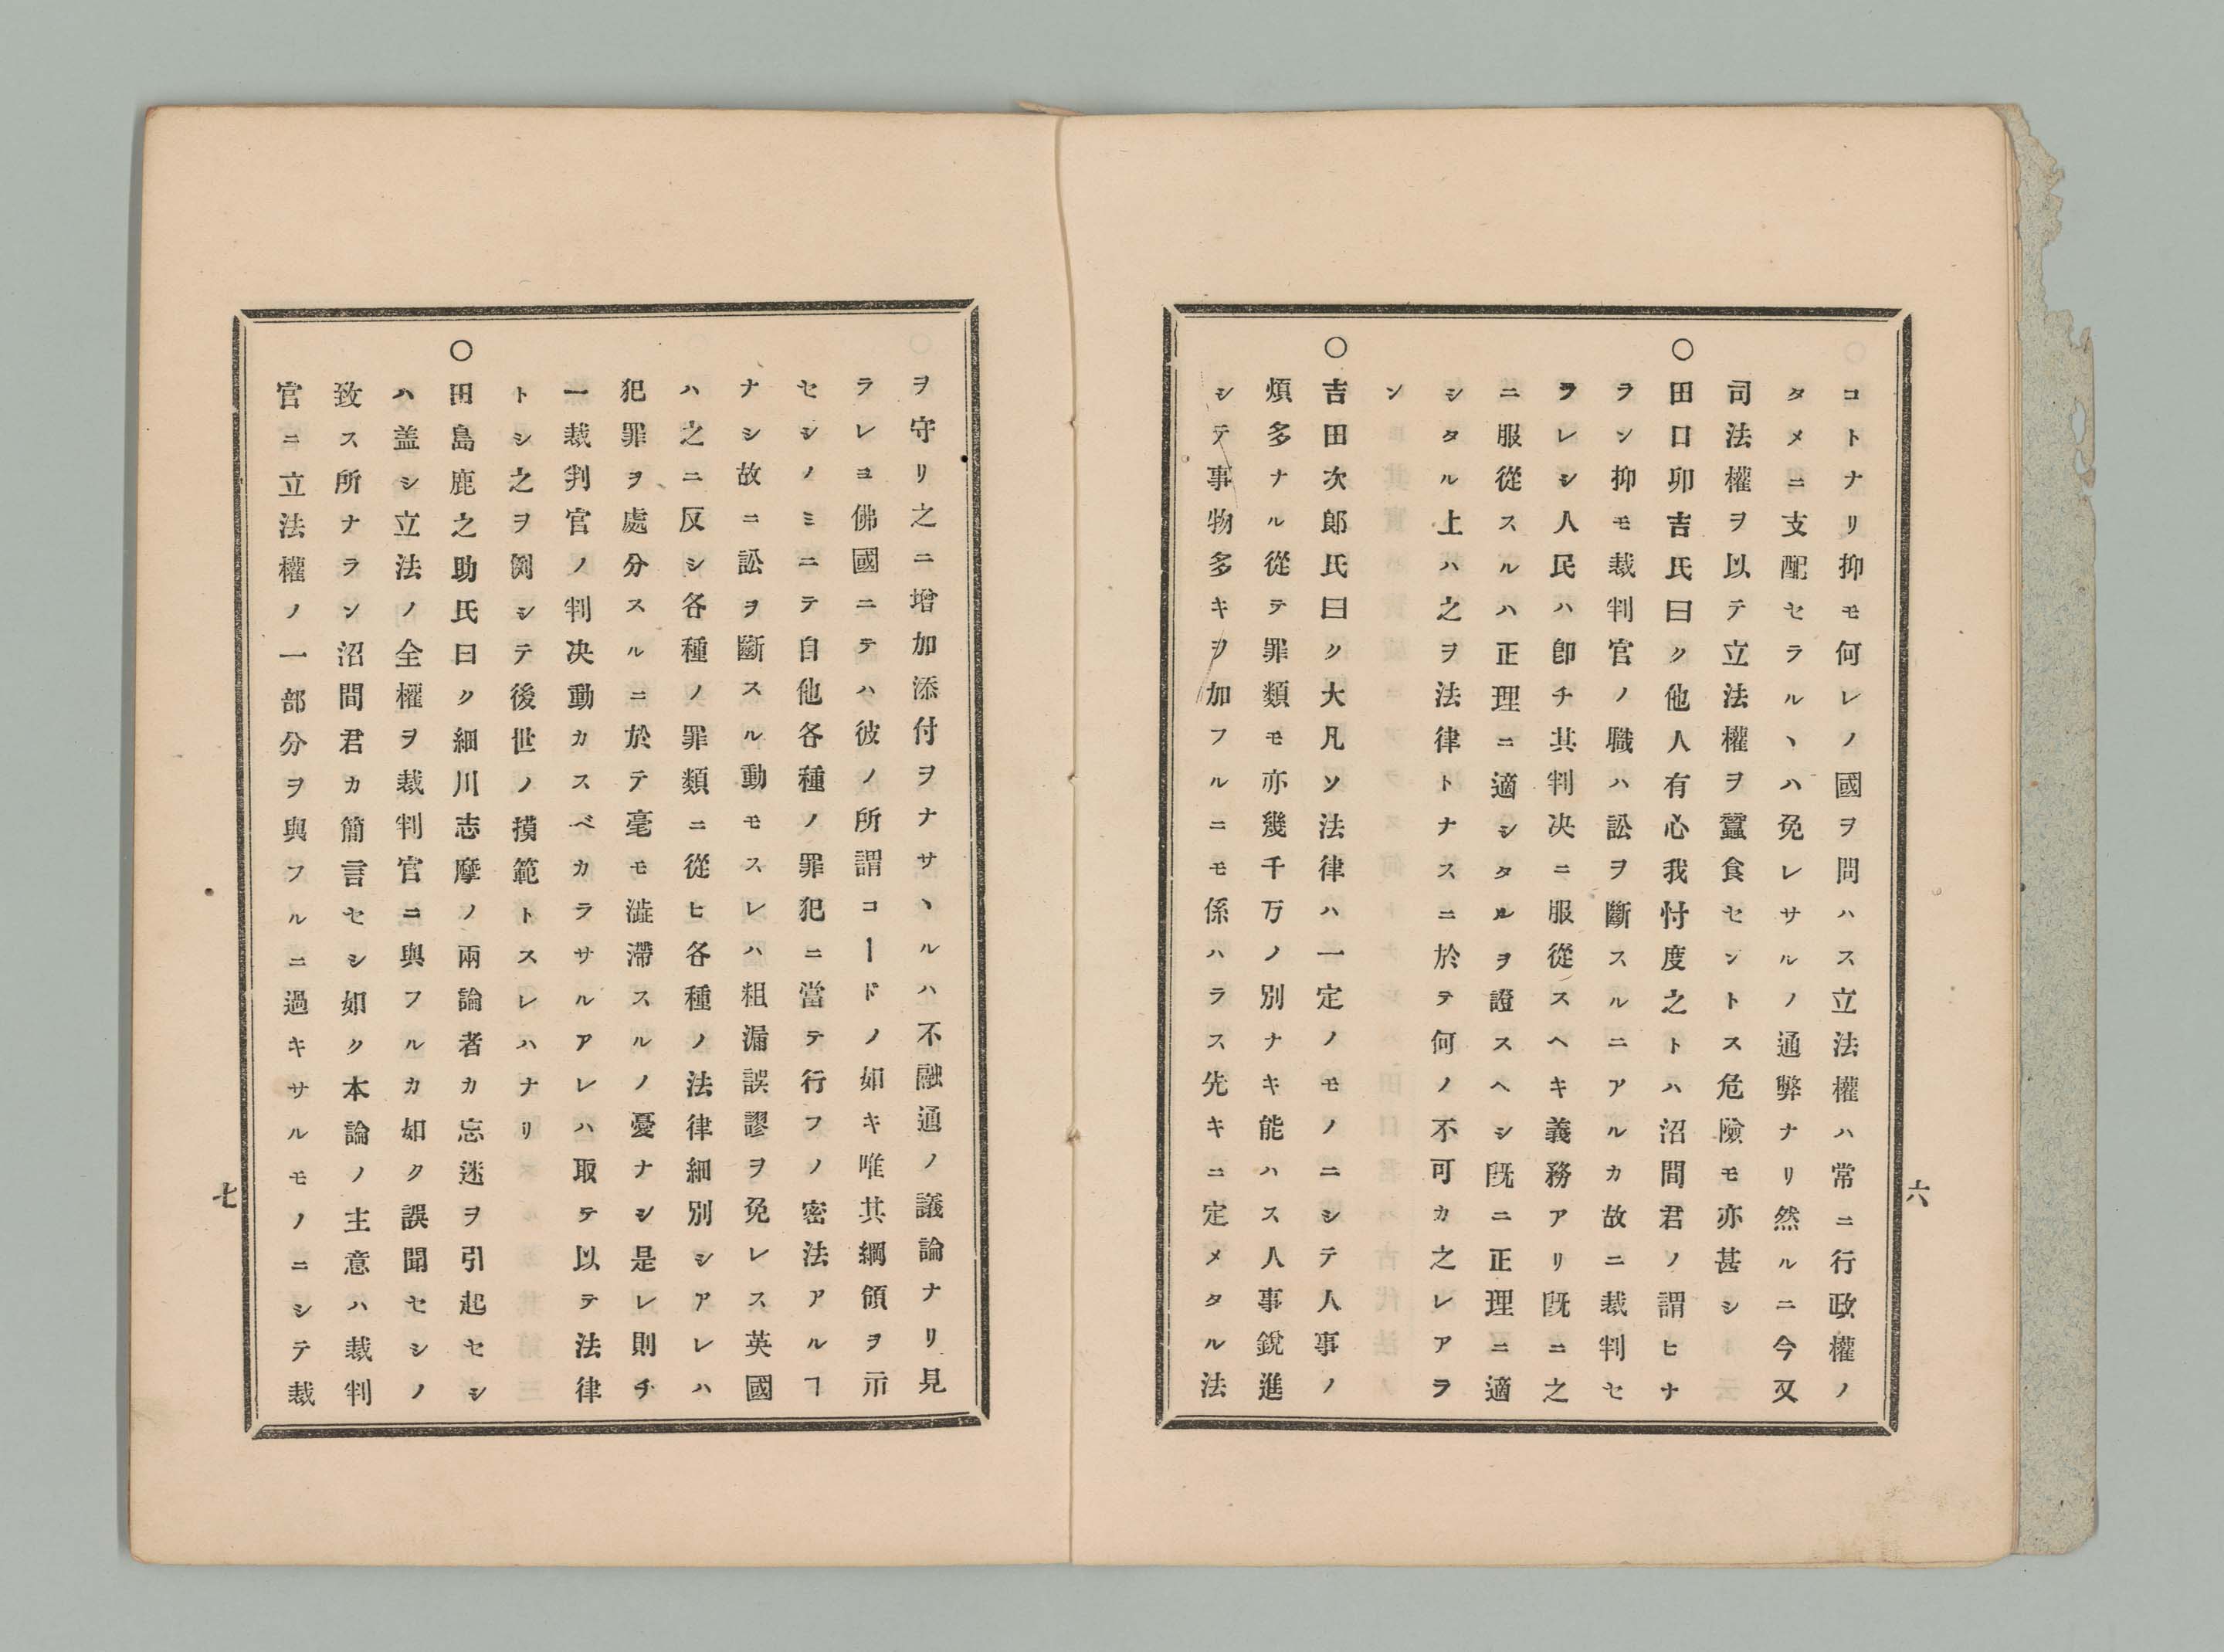 コトナリ抑モ何レノ國ヲ問ハス立法權ハ常ニ行政權ノ
タメニ支配セラルヽハ免レサルノ通弊ナリ然ルニ今又
司法權ヲ以テ立法權ヲ蠶食セントス危險モ亦甚シ
○田口卯吉氏曰ク他人有心我忖度之トハ沼間君ノ謂ヒナ
ラン抑モ裁判官ノ職ハ訟ヲ斷スルニアルカ故ニ裁判セ
ヲレシ人民ハ卽チ其判决ニ服從スヘキ義務アリ既ニ之
ニ服從スルハ正理ニ適シタルヲ證スヘシ既ニ正理ニ適
シタル上ハ之ヲ法律トナスニ於テ何ノ不可カ之レアラ
ン
○吉田次郎氏曰ク大凡ソ法律ハ一定ノモノニシテ人事ノ
煩多ナル從テ罪類モ亦幾千万ノ別ナキ能ハス人事銳進
シテ事物多キヲ加フルニモ係ハラス先キニ定メタル法
六
ヲ守リ之ニ增加添付ヲナサヽルハ不融通ノ議論ナリ見
ラレヨ佛國ニテハ彼ノ所謂コードノ如キ唯其綱領ヲ示
セシノミニテ自他各種ノ罪犯ニ當テ行フノ密法アルヿ
ナシ故ニ訟ヲ斷スル動モスレハ粗漏誤謬ヲ免レス英國
ハ之ニ反シ各種ノ罪類ニ從ヒ各種ノ法律細別シアレハ
犯罪ヲ處分スルニ於テ毫モ澁滯スルノ憂ナシ是レ則チ
一裁判官ノ判决動カスベカラサルアレハ取テ以テ法律
トシ之ヲ例シテ後世ノ摸範トスレハナリ
○田島鹿之助氏曰ク細川志摩ノ兩論者カ忘迷ヲ引起セシ
ハ盖シ立法ノ全權ヲ裁判官ニ與フルカ如ク誤聞セシノ
致ス所ナラン沼間君カ簡言セシ如ク本論ノ主意ハ裁判
官ニ立法權ノ一部分ヲ與フルニ過キサルモノニシテ裁
七